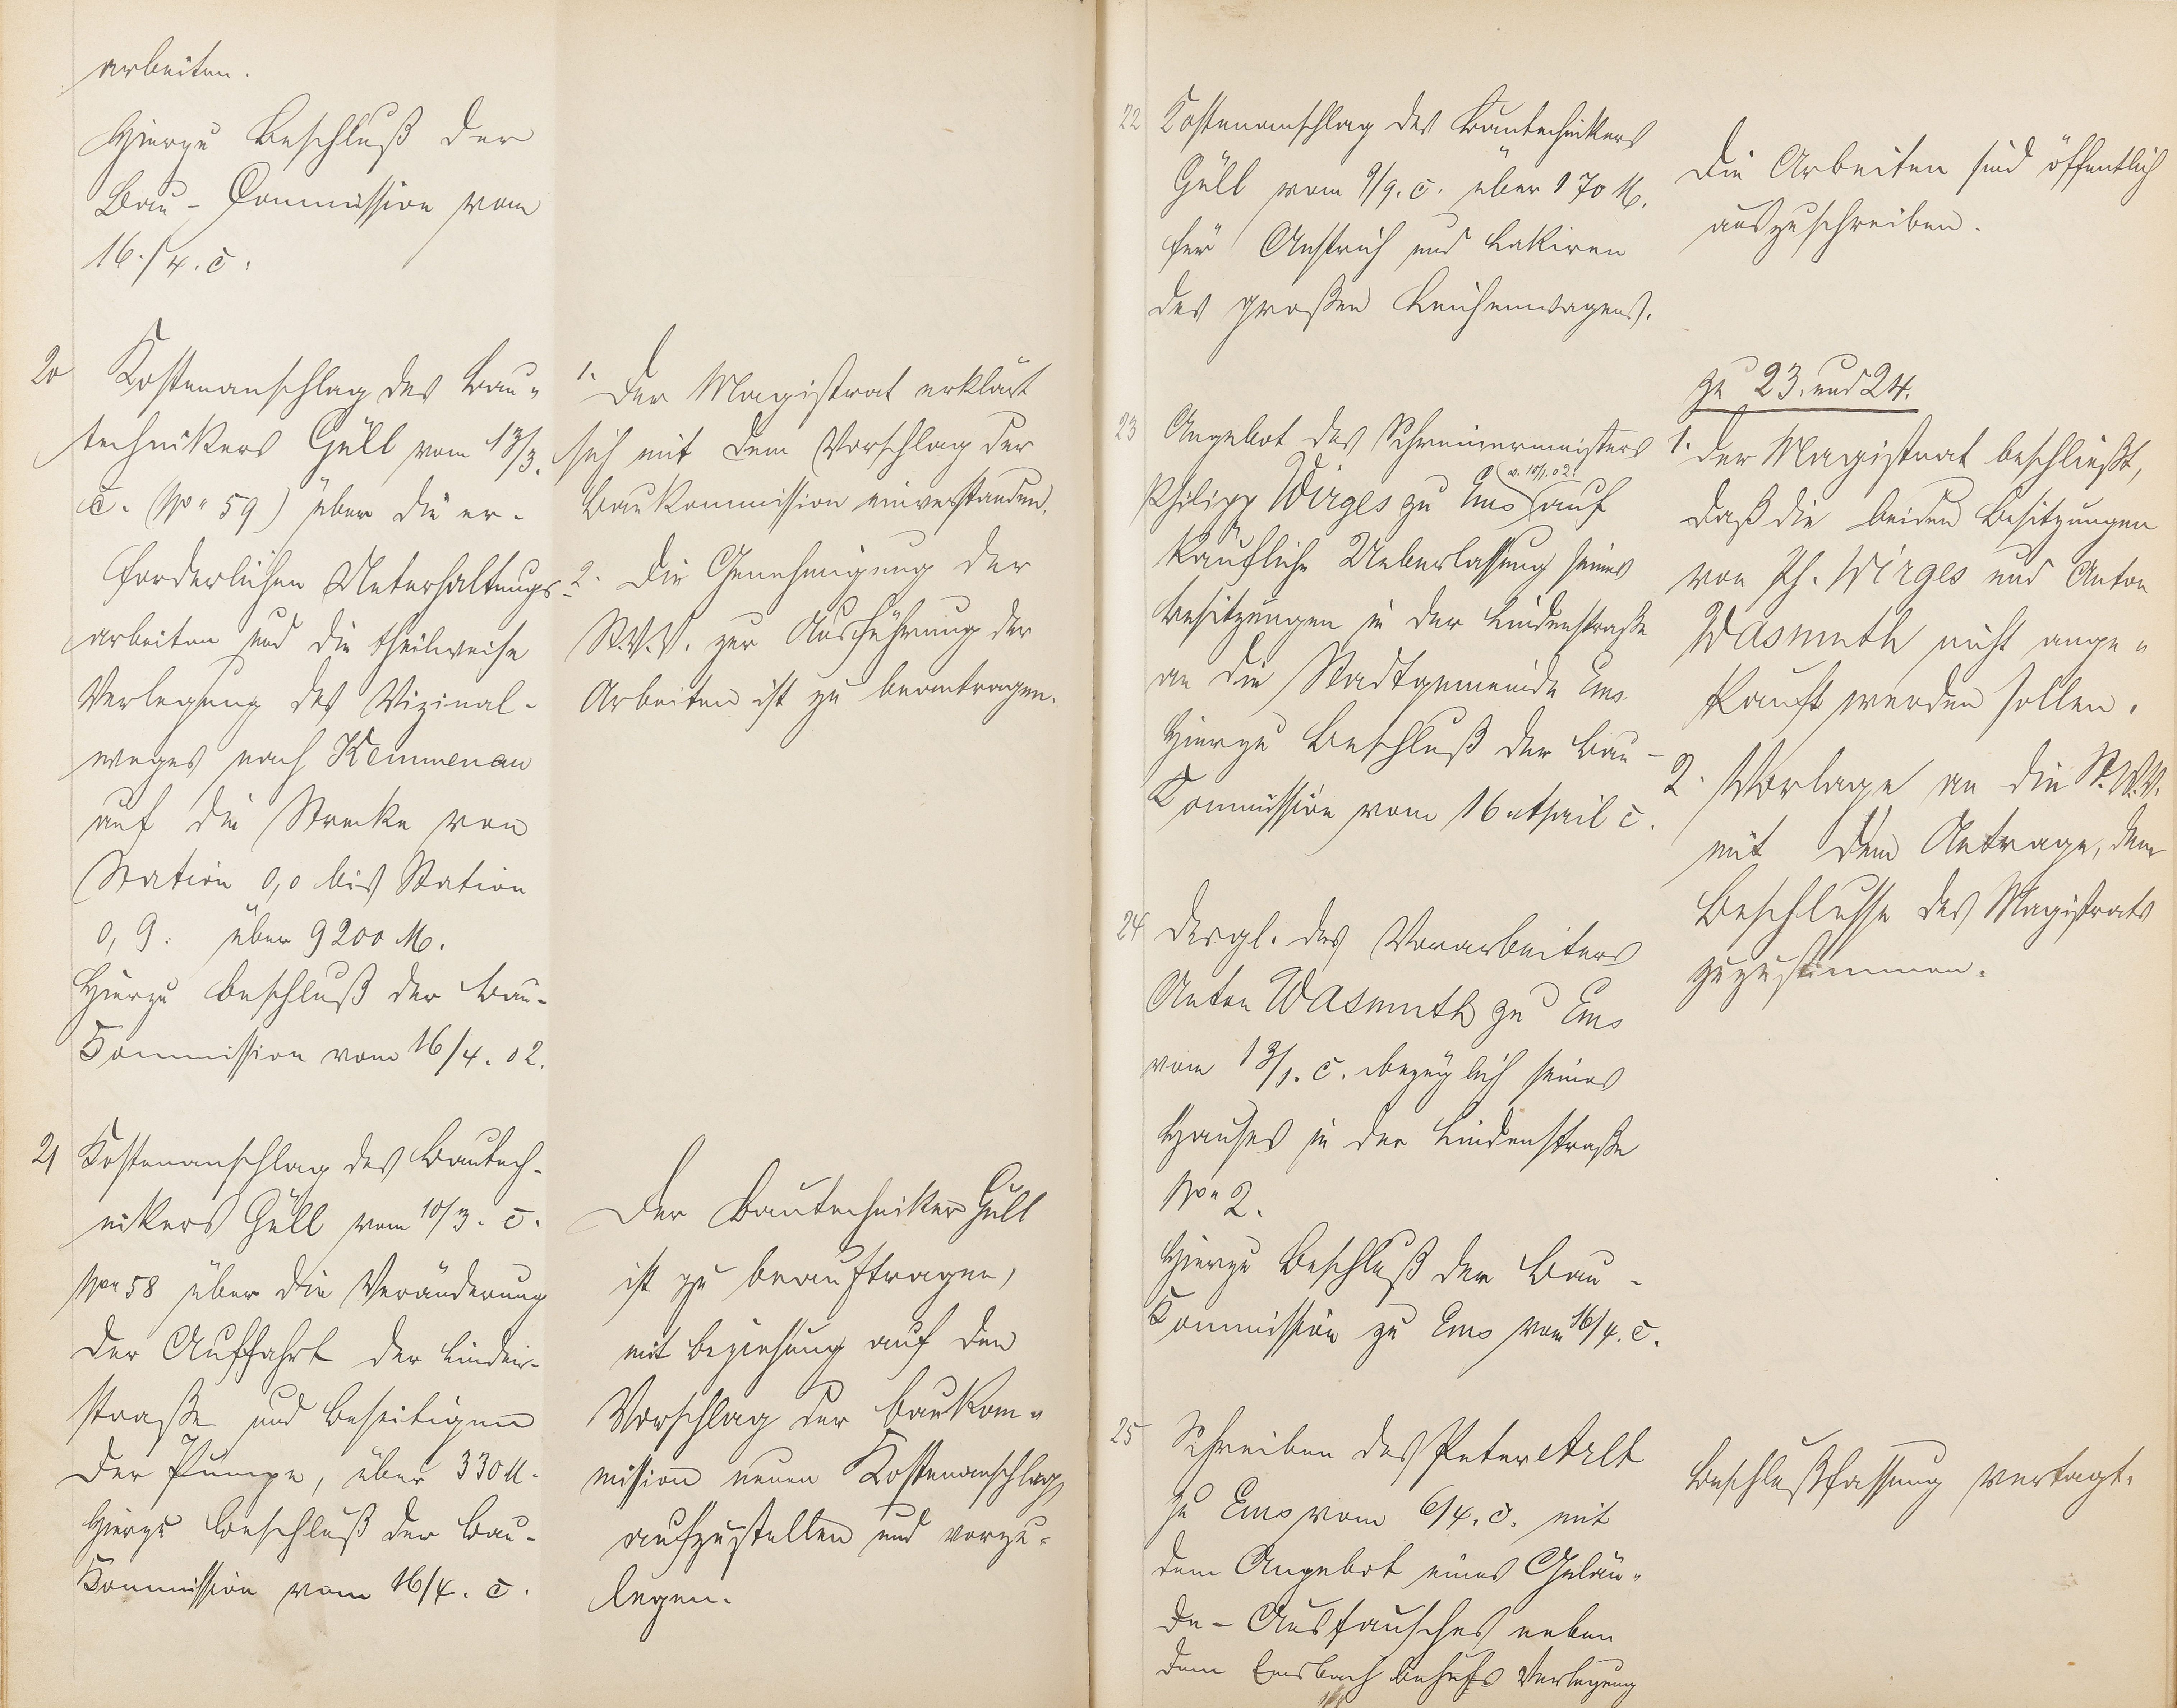 arbeiten.
Hierzu Beschluß der
Bau-Commission vom
16./4. c.
20 Kostenanschlag des Bau-
technikers Güll vom 13/3.
c. No 59) über die er-
forderlichen Unterhaltungs-
arbeiten und die theilweise
Verlegung des Vizinal-
weges nach Kemmenau
auf die Strecke von
Station 0,0 bis Station
0,9. über 9200 M.
Hierzu Beschluß der Bau-
Kommission vom 16/4. 02.
21 Kostenanschlag des Bautech-
nikers Güll vom 10/3. c.
No 58 über die Veränderung
der Auffahrt der Linden-
straße und Beseitigung
der Pumpe, über 330 M.
Hierzu Beschluß der Bau-
Kommission vom 16/4. c.
1. Der Magistrat erklärt
sich mit dem Vorschlag der
Baukommission einverstanden.
2. Die Genehmigung der
St.V.V. zur Ausführung der
Arbeiten ist zu beantragen.
Der Bautechniker Güll
ist zu beauftragen,
mit Beziehung auf den
Vorschlag der Baukom-
mission neuen Kostenanschlag
aufzustellen und vorzu-
legen.
22 Kostenanschlag des Bautechnikers
Güll vom 9/9. c. über 170 M.
für Anstrich und Lakiren
des großen Leichenwagens.
23 Angebot des Schreinermeisters
Philipp Wirges zu Ems v. 10/1. 02. auf
käufliche Ueberlassung seines
Besitzungen in der Lindenstraße
an die Stadtgemeinde Ems
Hierzu Beschluß der Bau-
Kommission vom 16 April c.
24 Desgl. des Vorarbeiters
Anton Wasmuth zu Ems
vom 13/1. c. bezüglich seines
Hauses in der Lindenstraße
No 2.
Hierzu Beschluß der Bau-
Kommission zu Ems vom 16/4. c.
25 Schreiben des Peter Arlt
zu Ems vom 6/4. c. mit
dem Angebot eines Gelän-
de-Austausches neben
dem Emsbach behufs Verlegung
Die Arbeiten sind öffentlich
auszuschreiben.
zu 23. und 24.
1. Der Magistrat beschließt,
daß die beiden Besitzungen
von Ph. Wirges und Anton
Wasmuth nicht ange-
kauft werden sollen.
2. Vorlage an die St.V.V.
mit dem Antrage, dem
Beschlusse des Magistrats
zuzustimmen.
Beschlußfassung vertagt.